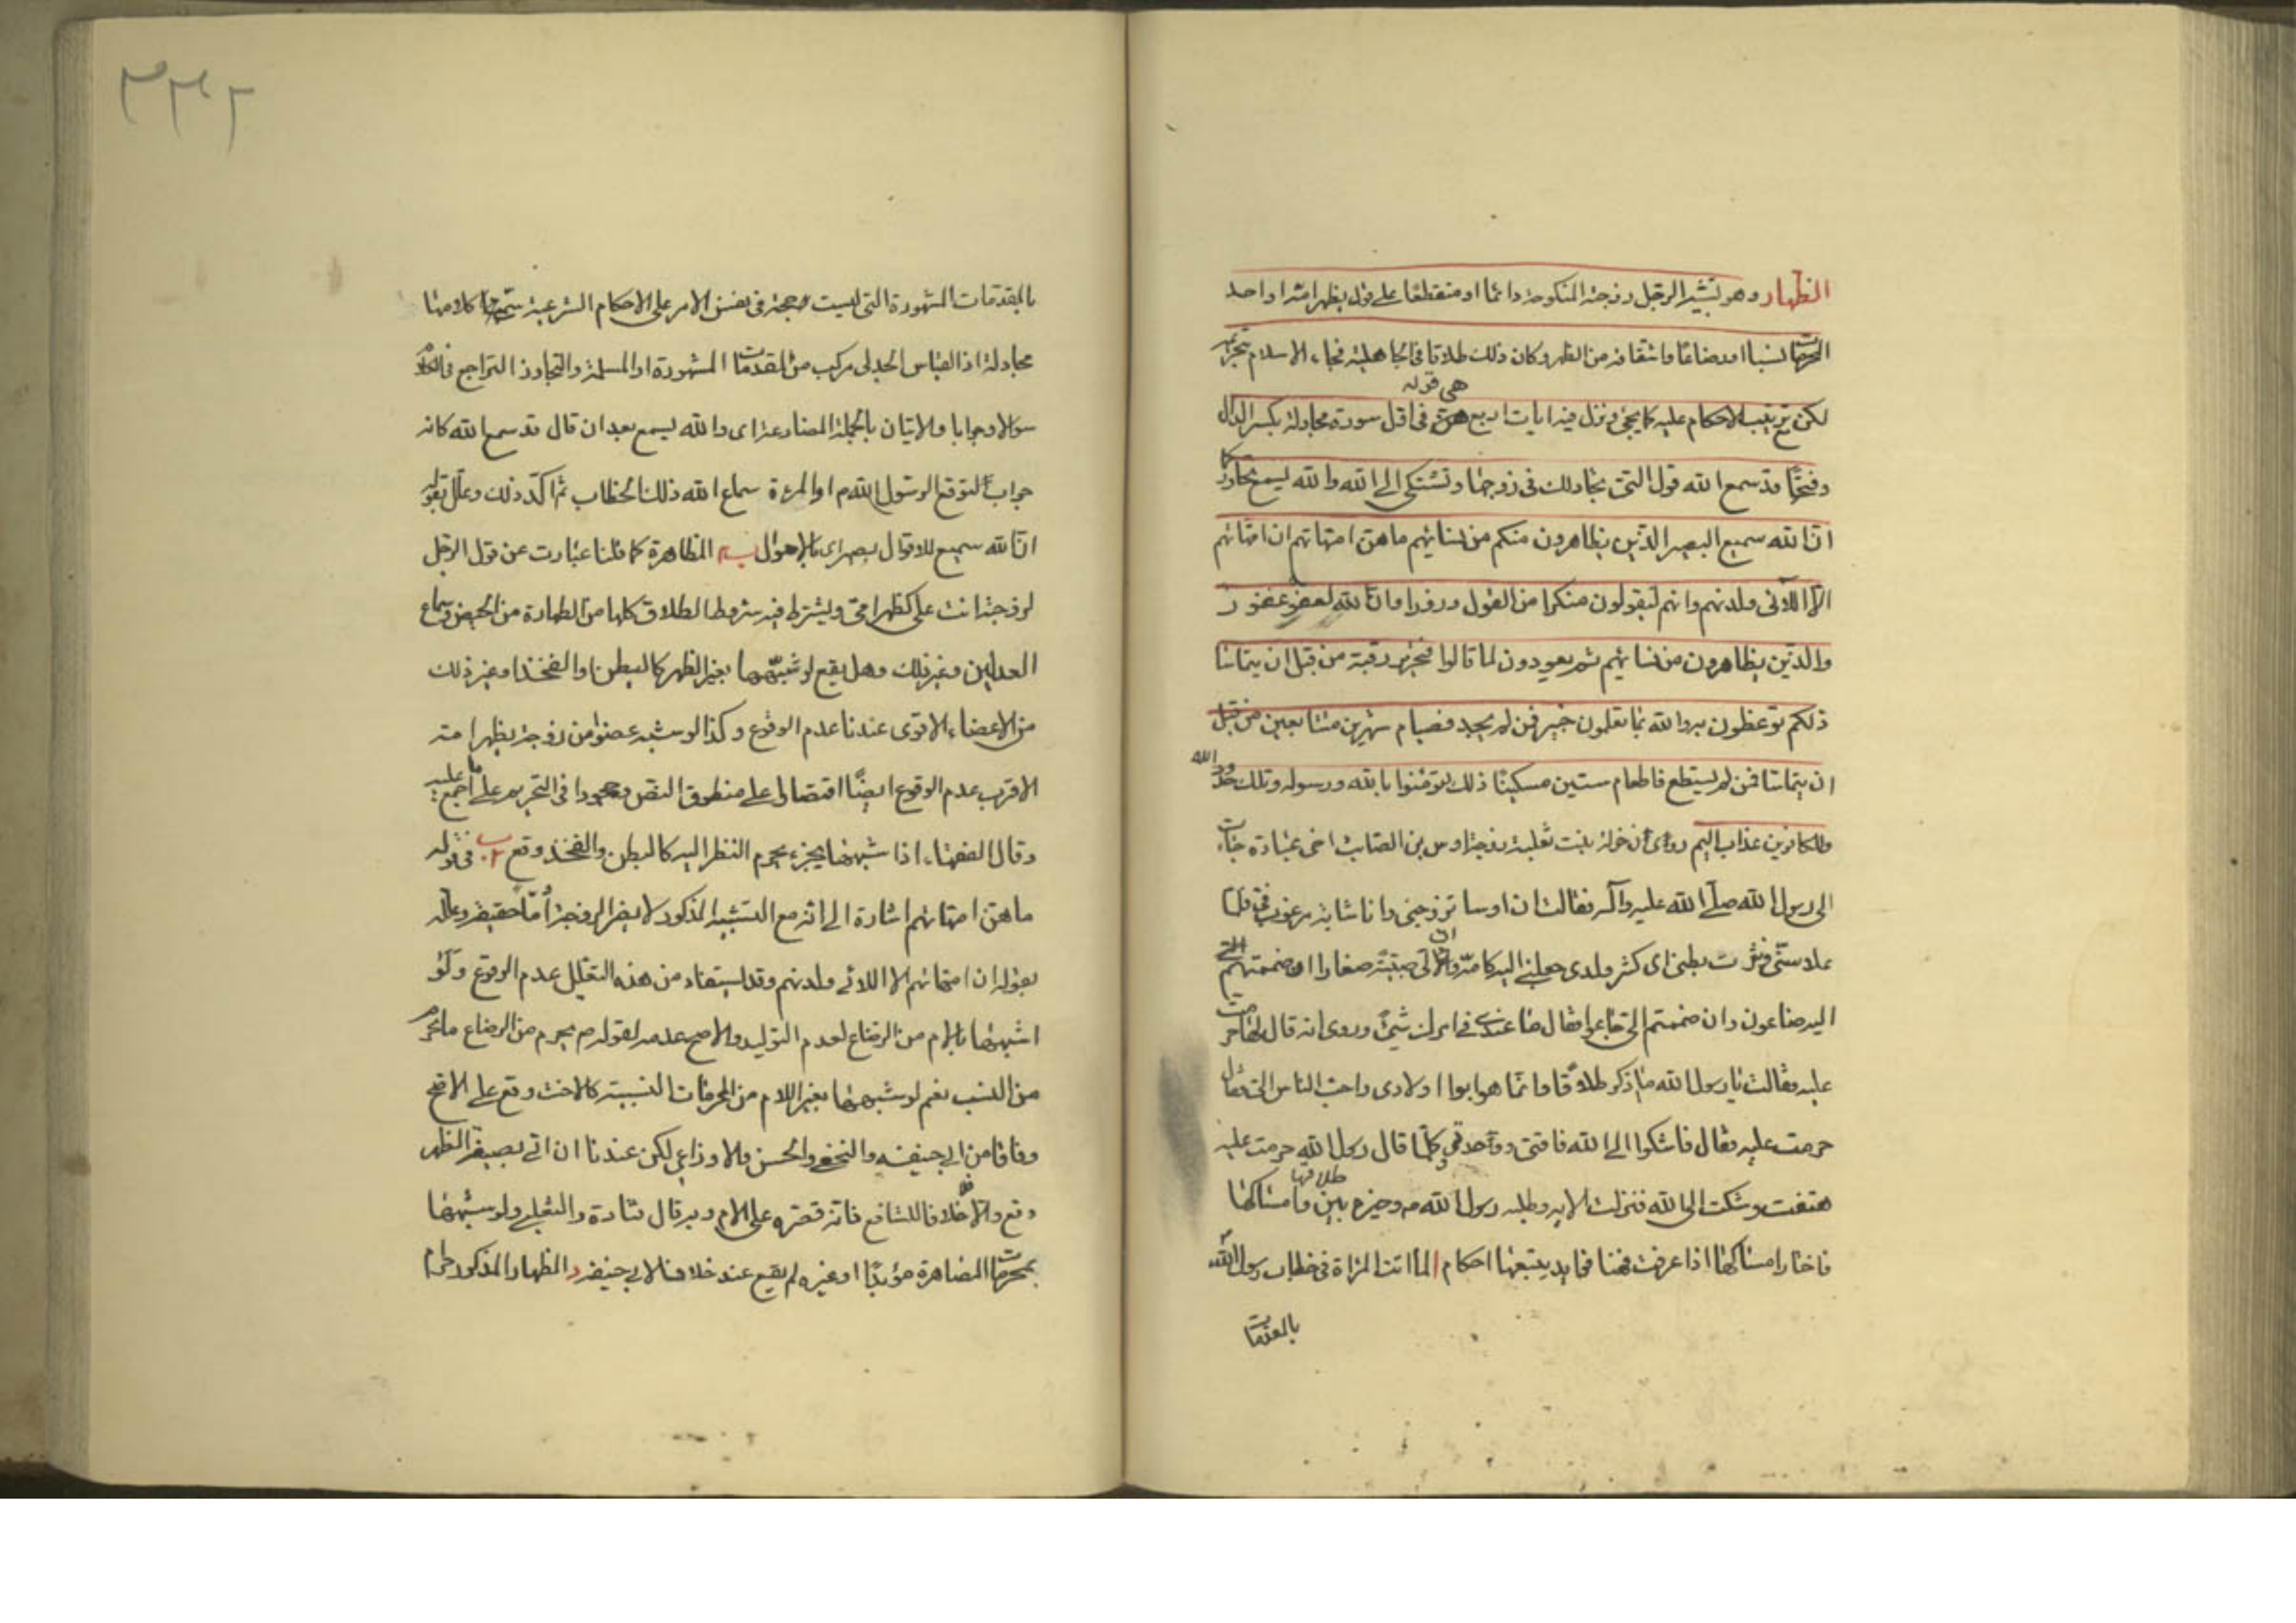 الظهار وهو تشبيه الرجل زوجته المنكوحة دائما او منقطعا على قول بظهر امه او احد
المحرمات نسبا او رضاعا واشتقاقه من الظهر وكان ذلك طلاقا في الجاهلية فجاء الاسلام بتحريمه
لكن ترتيب الاحكام عليه كما يجئ ونزل فيه ايات اربع هي قوله في اول سورة مجادلة بكسر الدال
وفتحها قد سمع الله قول التي تجادلك في زوجها وتشتكي الى الله والله يسمع تحاوركما
ان الله سميع البصير الذين يظاهرون منكم من نسائهم ما هن امهاتهم ان امهاتهم
الا اللائى ولدنهم وانهم ليقولون منكرا من القول وزورا وان الله لعفو غفور
والذين يظاهرون من نسائهم ثم يعودون لما قالوا فتحرير رقبة من قبل ان يتماسا
ذلكم توعظون به والله بما تعملون خبير فمن لم يجد فصيام شهرين متتابعين من قبل
ان يتماسا فمن لم يستطع فاطعام ستين مسكينا ذلك لتؤمنوا بالله ورسوله وتلك حدود الله
وللكافرين عذاب اليم روى ان خولة بنت ثعلبة زوجة اوس بن الصامت اخى عبادة جاءت
الى رسول الله صلى الله عليه وآله فقالت ان اوسا تزوجني وانا شابة مرغوب في فلما
علا سني ونثرت بطني اى كثر ولدى جعلني اليه كامه وان لي صبية صغارا ان ضممتهم
اليه ضاعوا وان ضممتهم الى جاعوا فقال ما عندي في امرك شئ وروى انه قال لها حرمت
عليه فقالت يا رسول الله ما ذكر طلاقا وانما هو ابو اولادى واحب الناس الى فقال
حرمت عليه فقال فاشكوا الى الله فاقتي ووجدي كلما قال رسول الله حرمت عليه
هتفت وشكت الى الله فنزلت الاية وطلبه رسول الله ص وخيره بين طلاقها وامساكها
فاختار امساكها اذا عرفت هذا يتبعها احكام ا لما اتت المراة في خطاب رسول الله
بالمقدمات
٣٣٢
بالمقدمات المشهورة التي ليست حجة في نفس الامر على الاحكام الشرعية سمى كلامها
مجادلة اذ القياس الجدلي مركب من المقدمات المشهورة او المسلمة والتحاور التراجع في الكلام
سؤالا وجوابا والاتيان بالجملة المضارعة اى والله يسمع بعد ان قال قد سمع الله كانه
جواب لتوقع الرسول الله ص او المرءة سماع الله ذلك الخطاب ثم اكد ذلك وعلل بقوله
ان الله سميع للاقوال بصير اى بالاحوال ب المظاهرة كما قلنا عبارت عن قول الرجل
لزوجته انت على كظهر امى ويشترط فيه شروط الطلاق كلها من الطهارة من الحيض وسماع
العدلين وغير ذلك وهل يقع لو شبهها بغير الظهر كالبطن والفخذ او غير ذلك
من الاعضاء الاقوى عندنا عدم الوقوع وكذا لو شبه عضوا من زوجته بظهر امه
الاقرب عدم الوقوع ايضا اقتصارا على منطوق النص في التحريم على ما اجمع عليه
وقال الفقهاء اذا شبهها بجزء يحرم النظر اليه كالبطن والفخذ وقع في قوله
ما هن امهاتهم اشارة الى انه مع التشبيه المذكور لا يصير الزوجة اما حقيقة وعلله
بقوله ان امهاتهم الا اللائى ولدنهم وقد استفاد من هذه التعليل عدم الوقوع ولو
اشبهها بالام من الرضاع لعدم التوليد والاصح عدمه لقوله ص يحرم من الرضاع ما يحرم
من النسب نعم لو شبهها بغير الام من المحرمات النسبية كالاخت وقع على الاصح
وفاقا من ابي حنيفه والنخعي والحسن والاوزاعي لكن عندنا ان اتى بصيغة الظهر
وقع والا فلا خلافا للشافعي فانه قصره على الام وبه قال قتادة والشعبي ولو شبهها
بمحرمات المصاهرة مؤبدا او غيره لم يقع عند خلافا لابي حنيفة د الظهار المذكور حرام